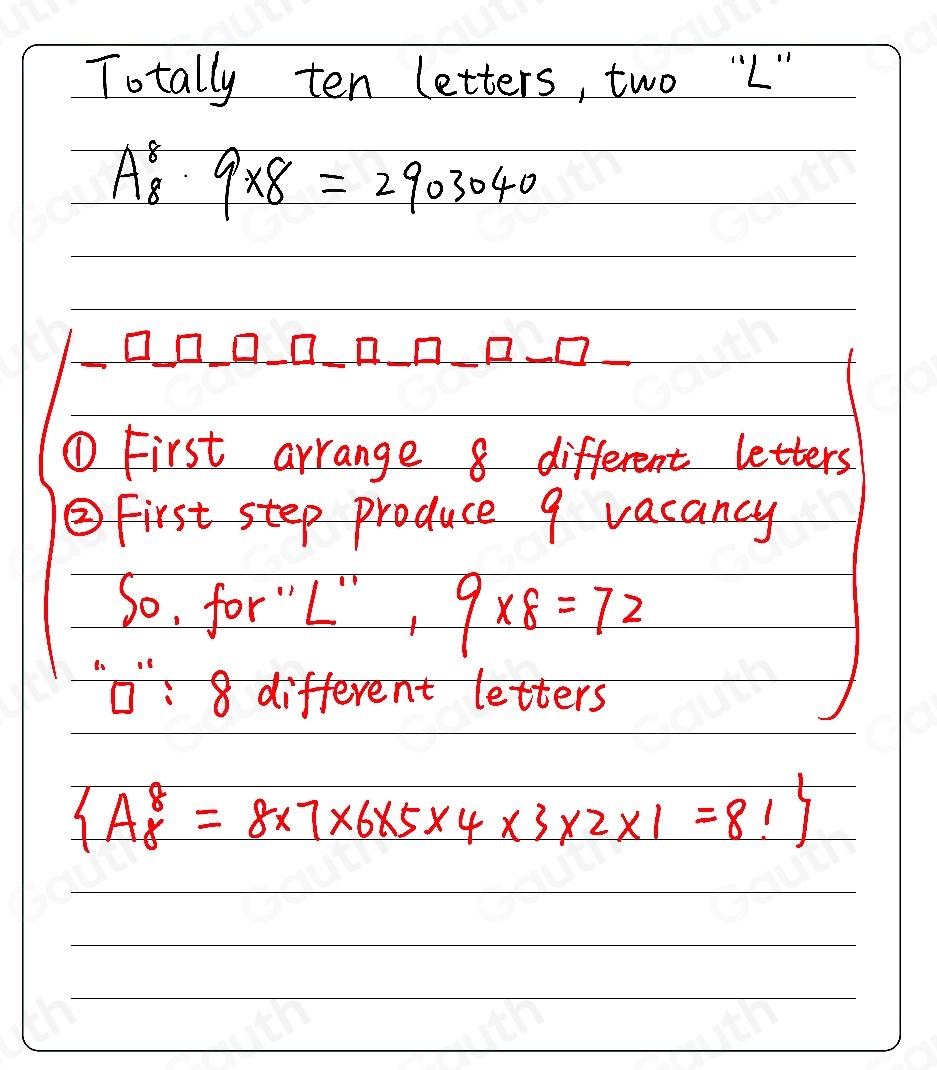 Totally ten letters, two "L"
A₈⁸ · 9×8 = 2903040
_ □ _ □ _ □ _ □ _ □ _ □ _ □ _ □ _
① First arrange 8 different letters
② First step produce 9 vacancy
So, for "L", 9×8=72
"□": 8 different letters
{A₈⁸ = 8×7×6×5×4×3×2×1 = 8!}